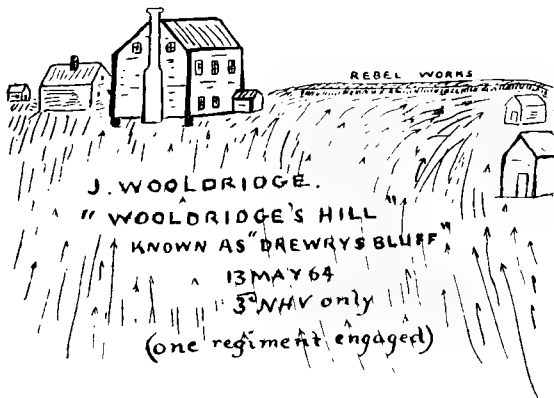 REBEL WORKS
J. WOOLDRIDGE.
"WOOLDRIDGE'S HILL"
KNOWN AS "DREWRYS BLUFF"
13 MAY 64
3d NHV only
(one regiment engaged)